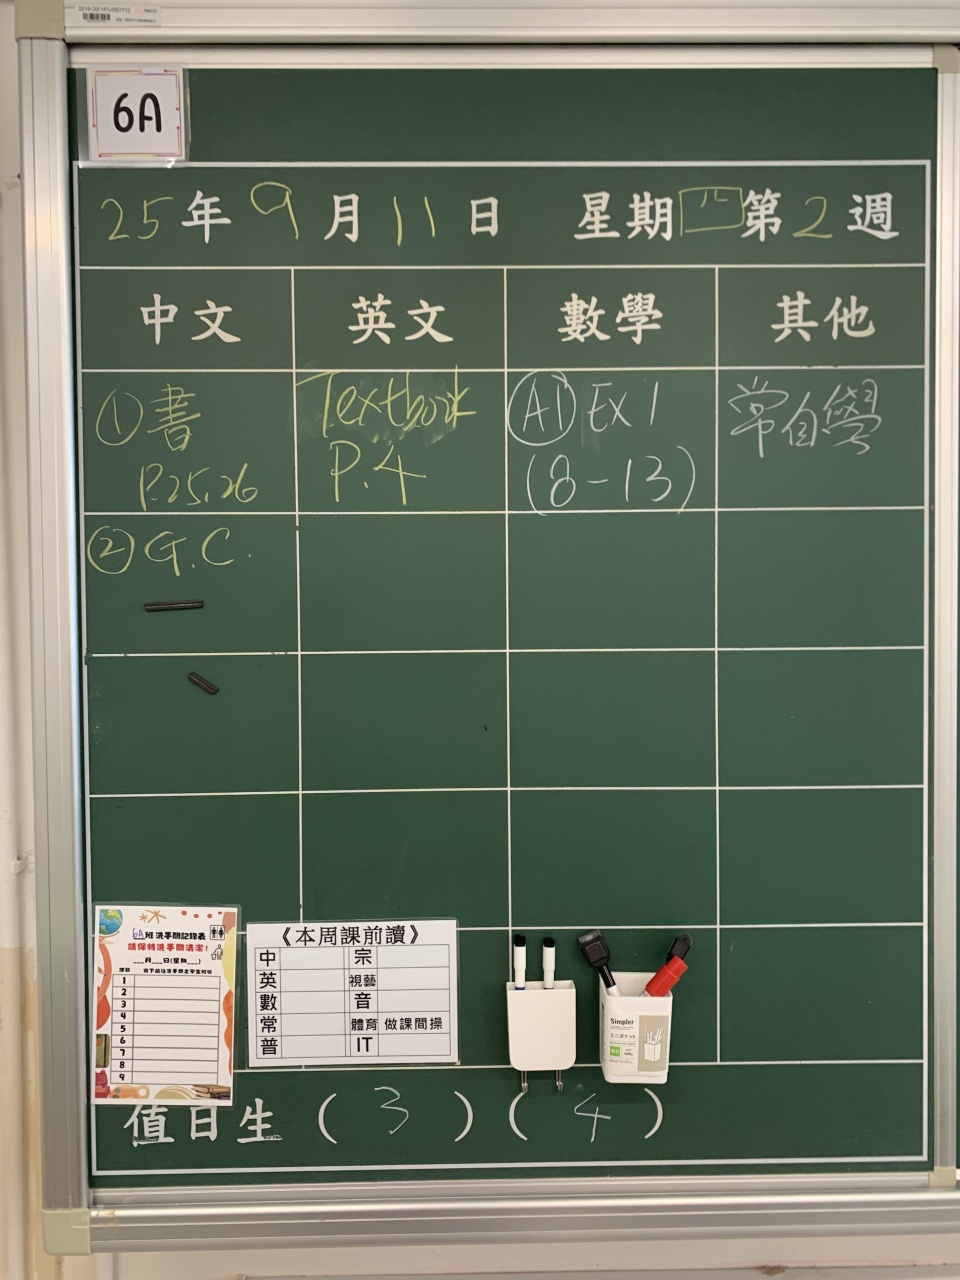 6A
25年9月11日 星期四第2週
中文 英文 數學 其他
①書
P.25,26
②G.C.
Textbook
P.4
A1 Ex 1
(8-13)
常自學
6A班洗手間記錄表
請保持洗手間清潔!
___月___日(星期___)
1
2
3
4
5
6
7
8
9
《本周課前讀》
中 宗
英 視藝
數 音
常 體育 做課間操
普 IT
Simpler
值日生 (3) (4)